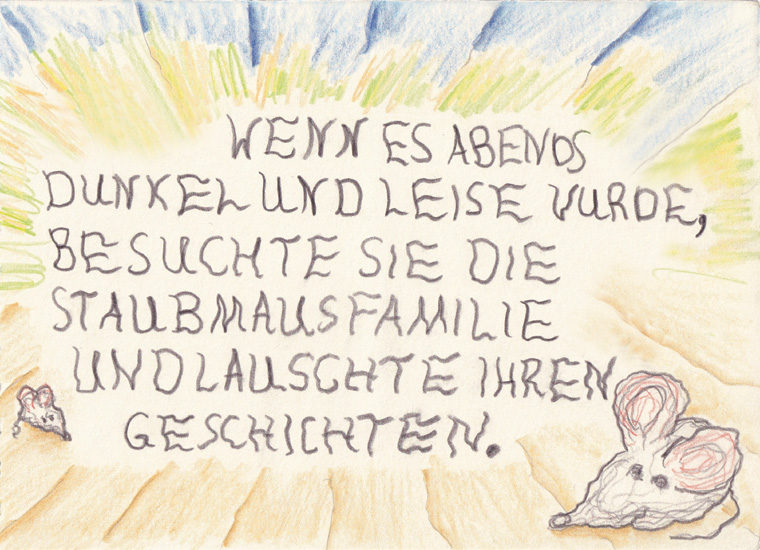 WENN ES ABENDS
DUNKEL UND LEISE WURDE,
BESUCHTE SIE DIE
STAUBMAUSFAMILIE
UND LAUSCHTE IHREN
GESCHICHTEN.